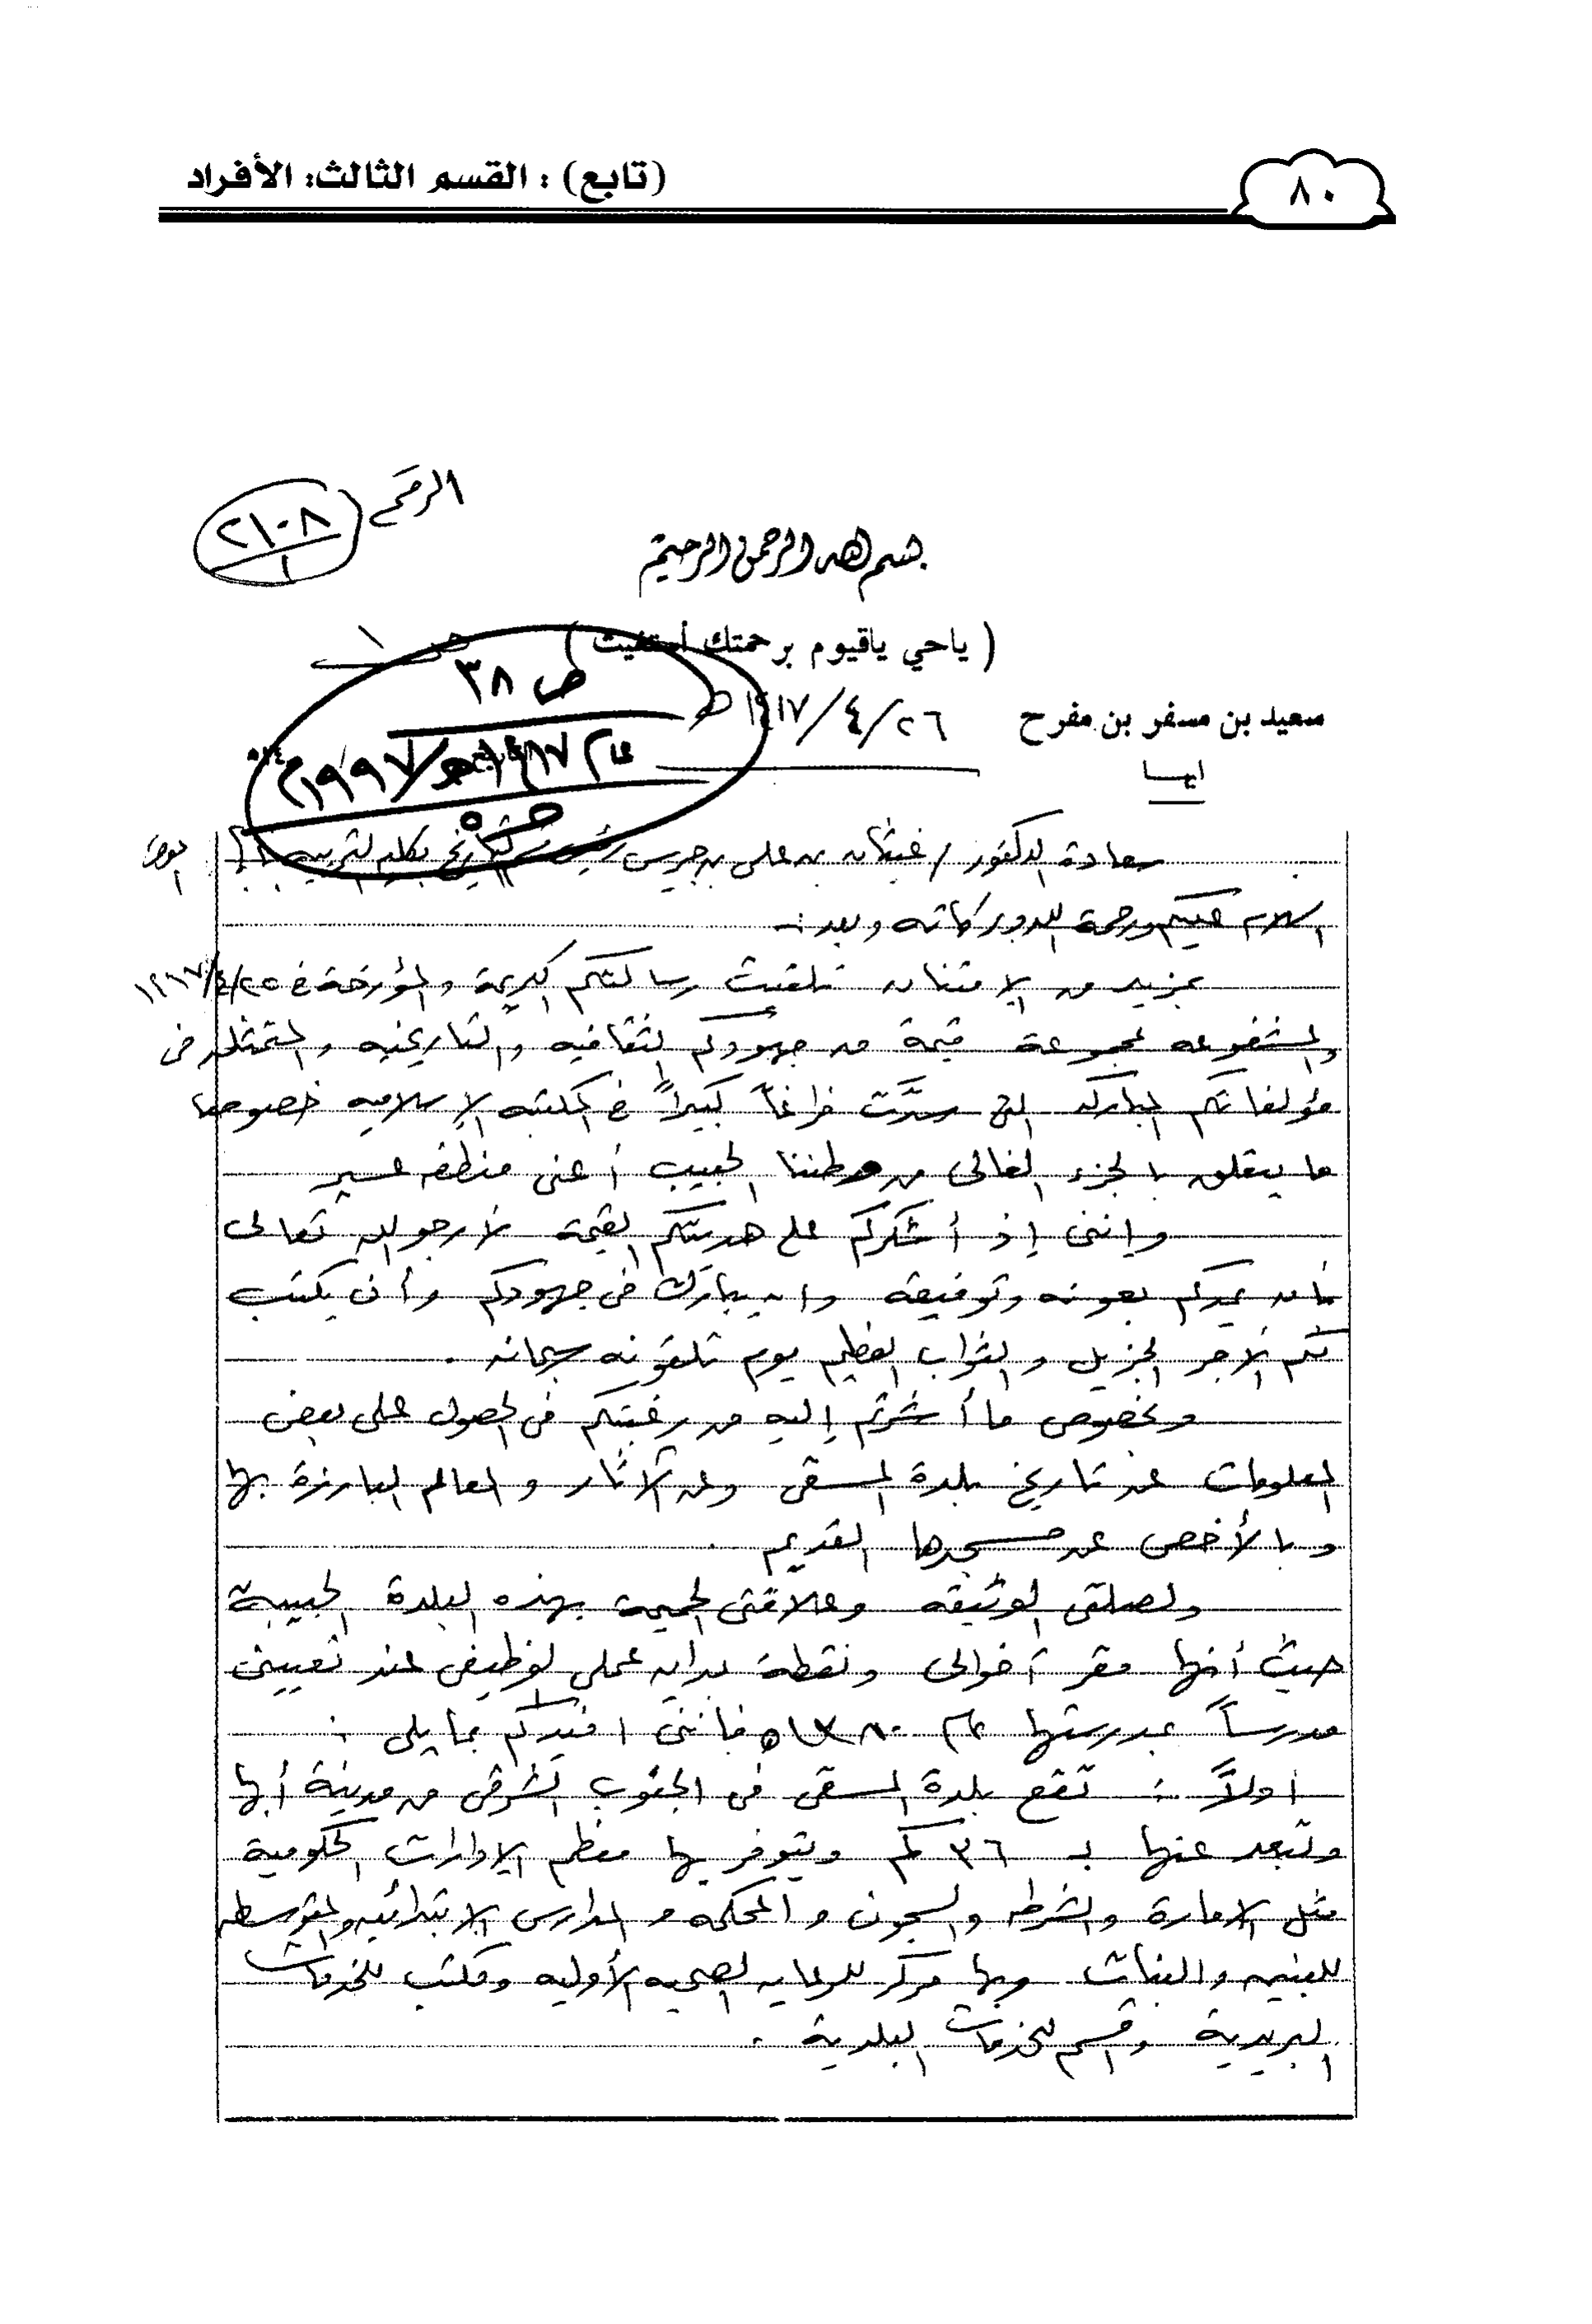 ٨٠
(تابع) : القسم الثالث: الأفراد
الرقم ٢١٠٨
١
بسم الله الرحمن الرحيم
( ياحي ياقيوم برحمتك أستغيث )
ص ٣٨
سعيد بن مسفر بن مفرح ٢٦/٤/١٤١٧هـ
ابها
عام ١٤١٧هـ/١٩٩٧م
سعادة الدكتور / غيثان بن علي بن جريس رئيس قسم التاريخ بكلية التربية بأبها الموقر
السلام عليكم ورحمة الله وبركاته وبعد :-
بمزيد من الامتنان تلقيت رسالتكم الكريمة والمؤرخة في ٢٥/٤/١٤١٧
والمشفوعه بمجموعة قيمة من جهودكم الثقافيه والتاريخيه والمتمثله في
مؤلفاتكم المباركه التي سدَّت فراغاً كبيراً في المكتبه الإسلاميه خصوصا
ما يتعلق بالجزء الغالي من وطننا الحبيب أعني منطقه عسير
وإنني إذ أشكركم على هديتكم القيمة لأرجو الله تعالى
بأن يمدكم بعونه وتوفيقه وان يبارك في جهودكم وأن يكتب
لكم الأجر الجزيل والثواب العظيم يوم تلقونه سبحانه .
وبخصوص ما أشرتم إليه من رغبتكم في الحصول على بعض
المعلومات عن تاريخ بلدة المسقي وعن الآثار والمعالم البارزة بها
وبالأخص عن مسجدها القديم .
ولصلتي الوثيقه وعلاقتي الحميمة بهذه البلدة الحبيبة
حيث أنها مقر أخوالي ونقطة بدايه عملي الوظيفي عند تعييني
مدرساً بمدرستها عام ١٣٨٠هـ فانني افيدكم بمايلي :
أولاً : تقع بلدة المسقي في الجنوب الشرقي من مدينة أبها
وتبعد عنها بـ ٣٦ كم ويتوفر بها معظم الإدارات الحكومية
مثل الامارة والشرطه والسجون والمحكمه والمدارس الابتدائيه والمتوسطه
للبنين والبنات وبها مركز للرعايه الصحيه الأوليه ومكتب للخدمات
البريدية وقسم للخدمات البلدية .